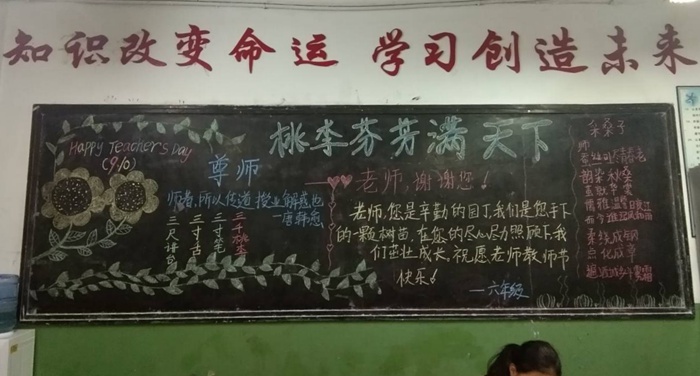 知识改变命运 学习创造未来
桃李芬芳满天下
Happy Teacher's Day
(9/10)
尊师
师者,所以传道 授业 解惑也
—唐韩愈
三尺讲台
三寸舌
三寸笔
三千桃李
老师,谢谢您!
老师,您是辛勤的园丁,我们是您手下
的一颗树苗,在您的尽心尽力照顾下我
们茁壮成长。祝愿老师教师节
快乐!
—六年级
采桑子
师